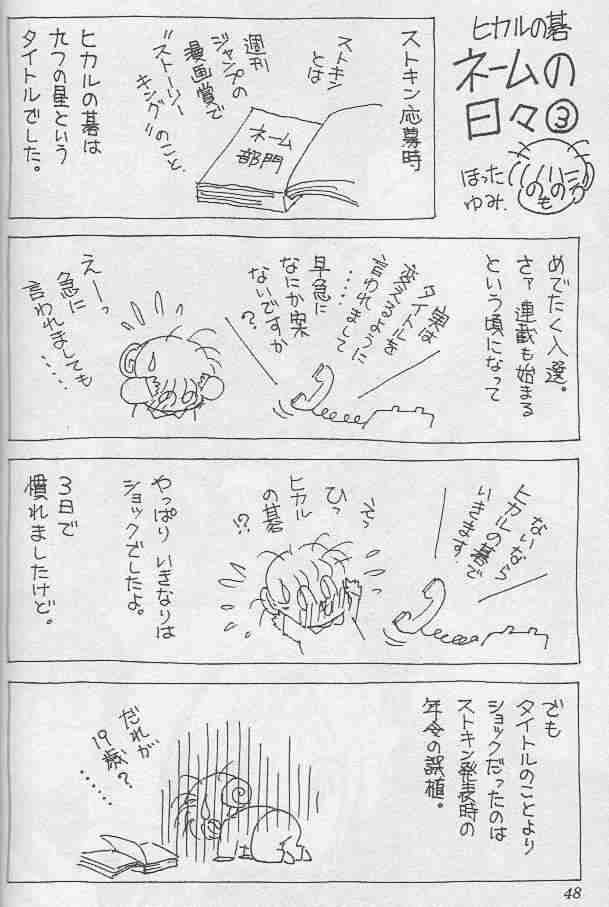 ヒカルの碁
ネームの
日々③
ほった
ゆみ.
ストキン応募時
ストキン
とは
週刊
ジャンプの
漫画賞で
"ストーリー
キング"のこと.
ネーム
部門
ヒカルの碁は
九つの星という
タイトルでした。
めでたく入選。
さァ 連載も始まる
という頃になって
実は
タイトルを
変えるように
言われまして
‥‥‥
早急に
なにか案
ないですか
?
えーっ
急に
言われましても
‥‥‥
ないなら
ヒカルの碁で
いきます.
えっ
ひっ
ヒカル
の碁
!?
やっぱり いきなりは
ショックでしたよ。
3日で
慣れましたけど。
でも
タイトルのことより
ショックだったのは
ストキン発表時の
年令の誤植。
だれが
19歳?
‥‥‥
48